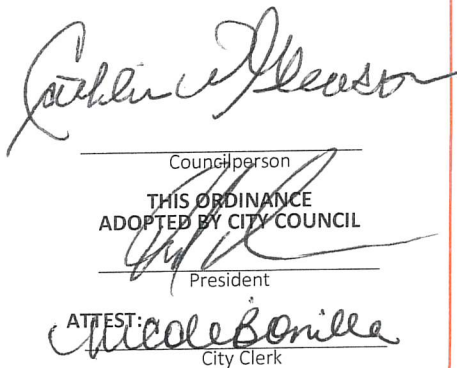 Caitlin W Gleason
Councilperson
THIS ORDINANCE
ADOPTED BY CITY COUNCIL
President
ATTEST:
Nicole Bonilla
City Clerk